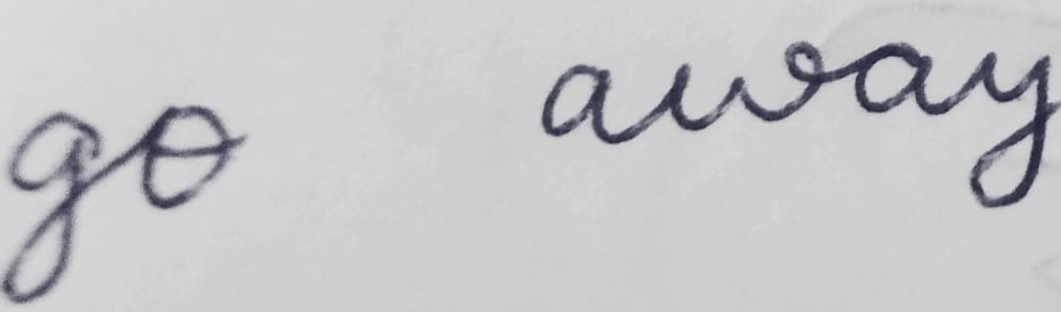 go away